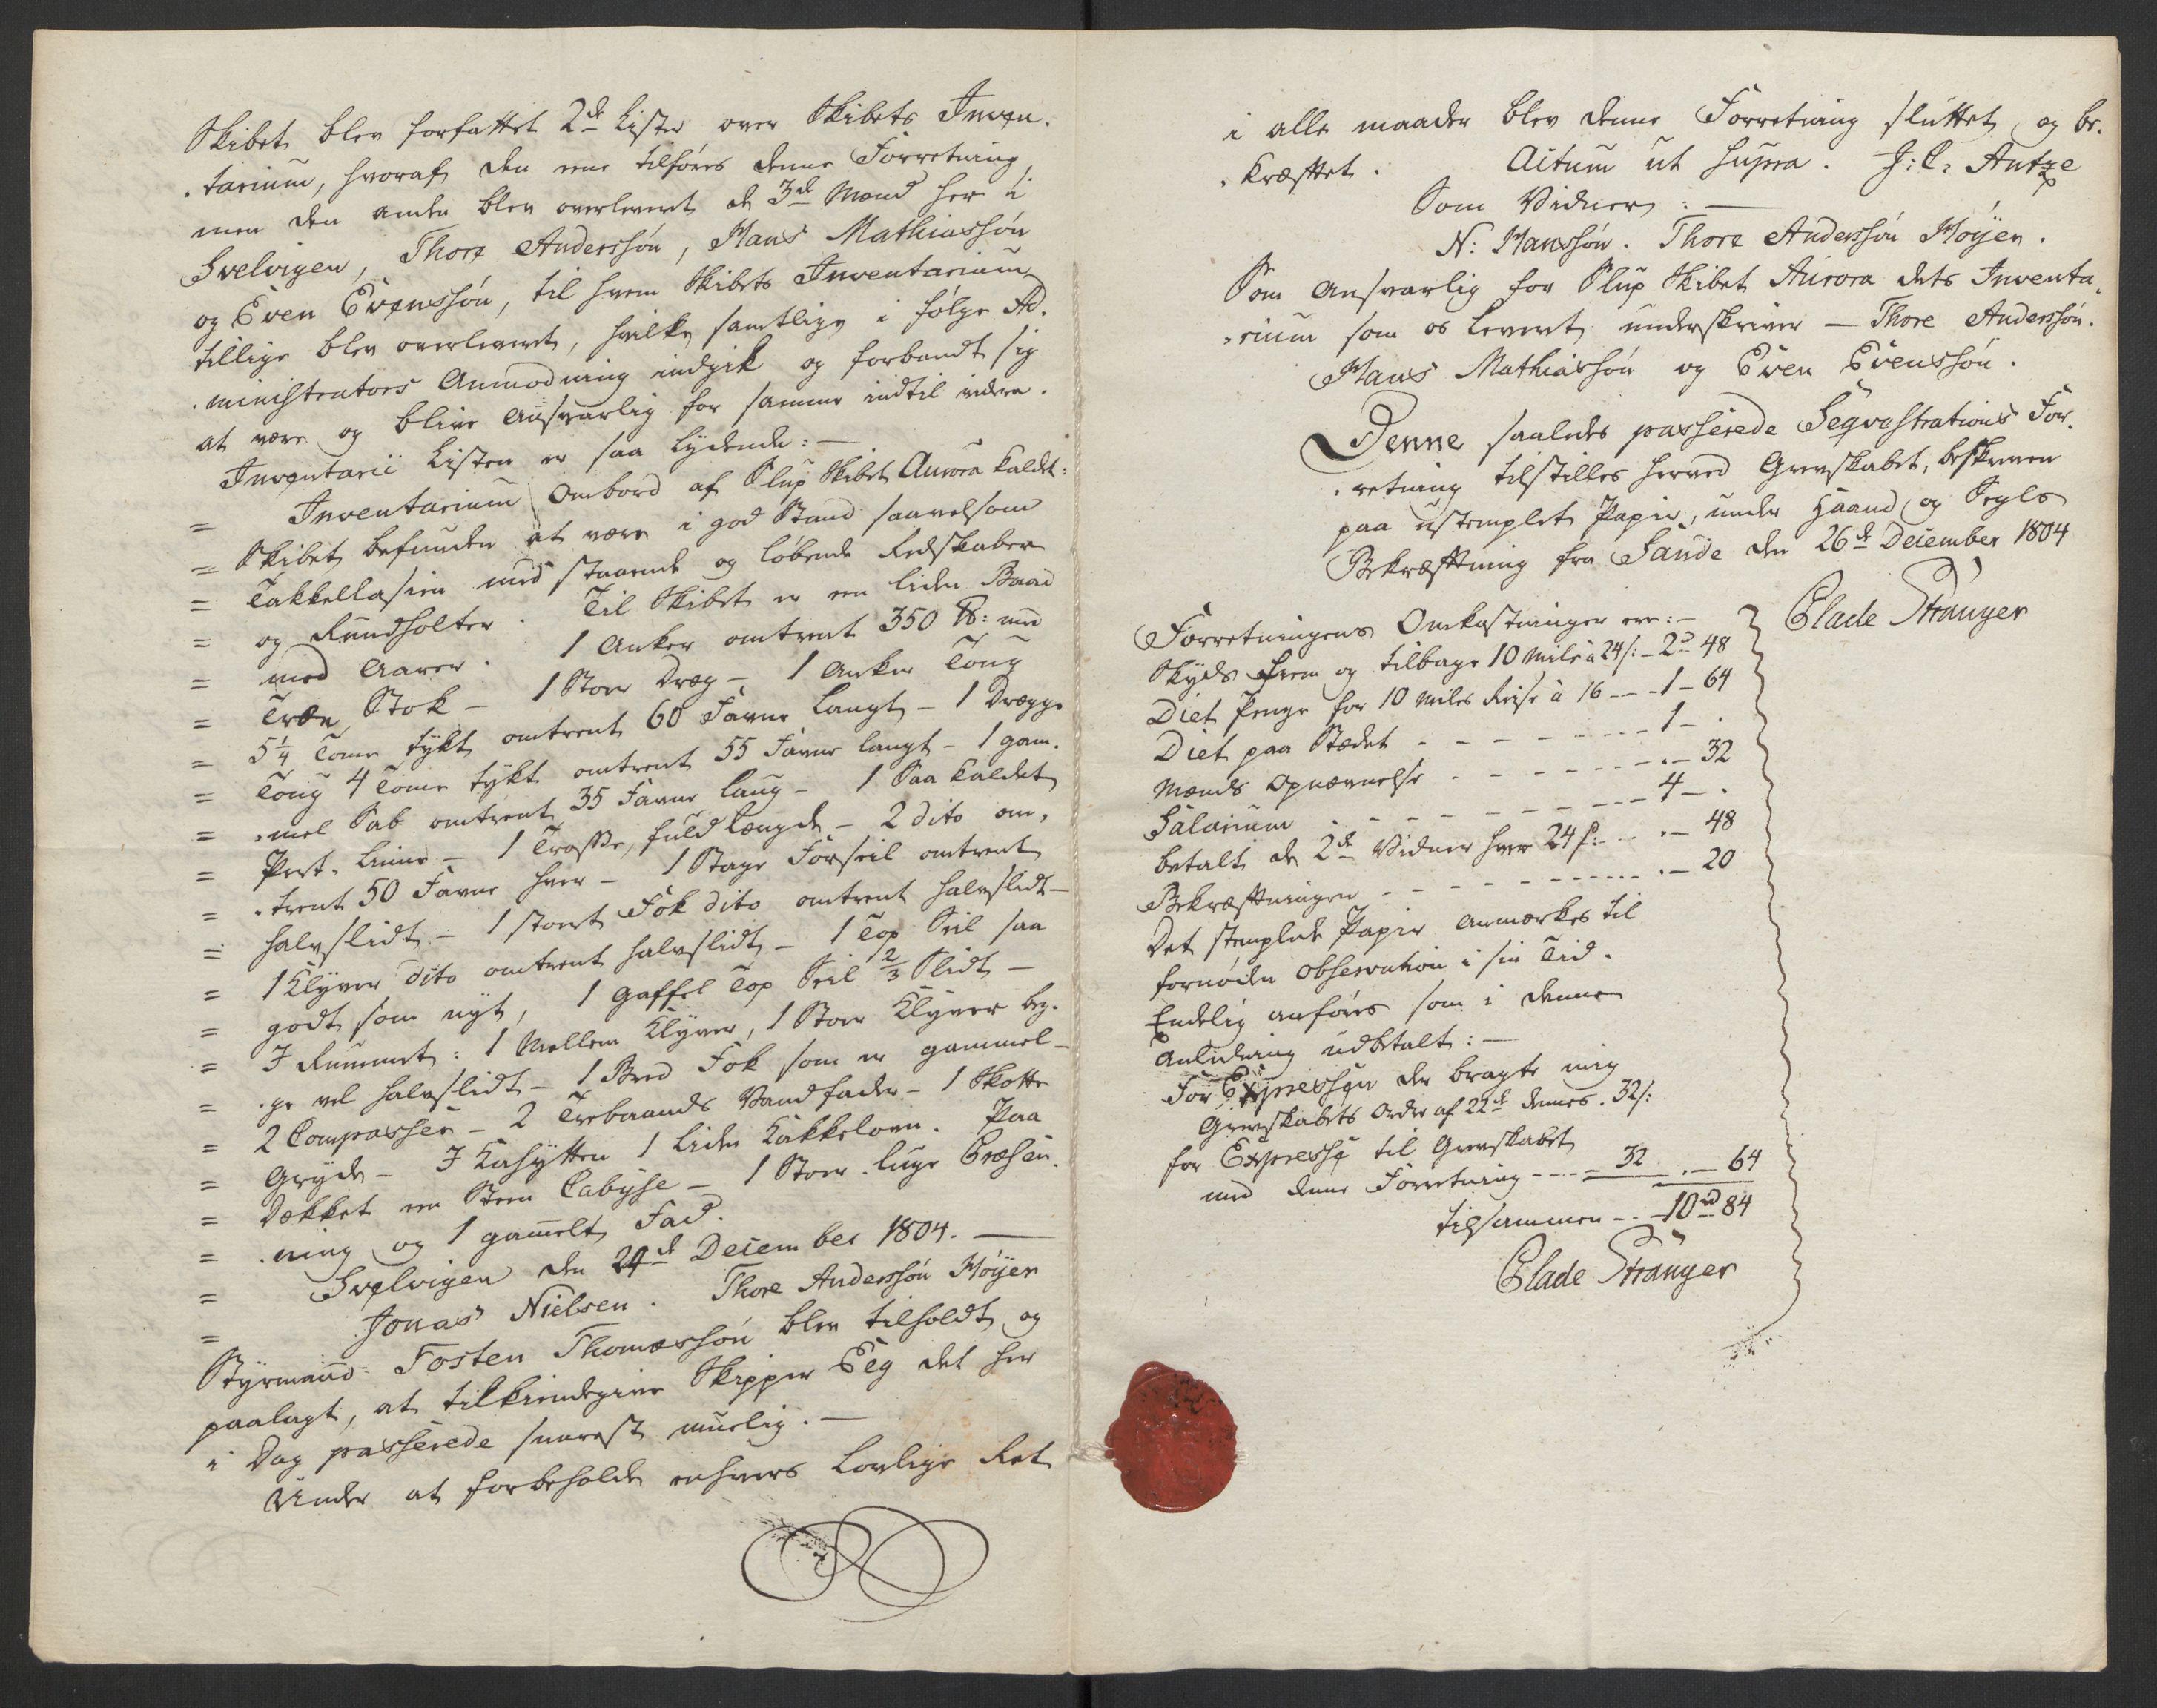 Skibet blev forfattet 2de Lister over Skibets Inven-
-tarium, hvoraf den eene tilføres denne Forretning,
men den anden blev overleveret de 3de Mænd her i
Svelvigen, Thore Anderssøn, Hans Mathiassøn
og Even Evenssøn, til hvem Skibets Inventarium
tillige blev overleveret, hvilke samtlige i følge Ad-
-ministrators Anmodning indgik og forbandt sig
at være og blive ansvarlig for samme indtil videre.
Inventarii Listen er saa lydende: —
= Inventarium Ombord af Slup Skibet Aurora kaldet:
= Skibet befunden at være i god Stand saavelsom
= Takkellasien med staaende og løbende Redskaber
= og Rundholter. Til Skibet er en liden Baad
= med Aarer. 1 Anker omtrent 350 ℔: med
= Træe Stok — 1 Stoer Dræg — 1 Anker Toug
= 5¼ Tome tykt omtrent 60 Favne langt — 1 Drægge
= Toug 4 Tome tykt omtrent 55 Favne langt — 1 gam-
= -mel Tab omtrent 35 Favne lang — 1 saa kaldet
= Pert-Linie — 1 Trosse, fuld længde — 2 dito om-
= -trent 50 Favne hver — 1 Stage Forseil omtrent
= halvslidt — 1 stoert Fok dito omtrent halvslidt —
= 1 Klyver dito omtrent halvslidt — 1 Top Seil saa
= godt som nyt, 1 Gaffel Top Seil ⅔ Slidt —
= I Rummet: 1 Mellem Klyver, 1 Stoer Klyver beg-
= -ge vel halvslidt — 1 Bred Fok som er gammel —
= 2 Compasser — 2 Trebaands Vandfade — 1 Skotte
= Gryde — I Kahytten 1 liden Kakkelovn. Paa
= Dækket en Steen Cabyse — 1 Stoer luge Præsen-
= -ning og 1 gam̄elt Fad.
= Svelvigen den 24de December 1804. —
= Jonas Nielsen. Thore Anderssøn Høyer
Styrmand Tosten Thomæssøn blev tilholdt og
paalagt, at tilkiendegive Skipper Eeg det her
i Dag passerede snarest muelig. —
Under at forbeholde enhvers Lovlige Ret
i alle maader blev denne Forretning sluttet og be-
-kræftet. Actum ut supra. J: C: Antze
Som Vidner: —
N: Hanssøn. Thore Anderssøn Høyer.
Som ansvarlig for Slup Skibet Aurora dets Inventa-
-rium som os leveret underskriver — Thore Anderssøn.
Hans Mathiassøn og Even Evenssøn.
Denne saaledes passerede Seqvestrations For-
-retning tilstilles herved Grevskabet, beskreven
paa ustemplet Papir, under Haand og Segls
Bekræftning fra Sande den 26de December 1804
Clade Stranger
Forretningens Omkostninger ere: —
Skyds frem og tilbage 10 Mile à 24 s: — 2 d 48
Diet Penge for 10 Miles Reise à 16 — — 1 — 64
Diet paa Stædet - - - - - 1 — .
Mænds Opnævnelse - - - - - . — 32
Salarium - - - - - 4 — .
betalt de 2de Vidner hver 24 s: - - . — 48
Bekræftningen - - - - - . — 20
Det stemplede Papir anmærkes til
fornøden observation i sin Tid.
Endelig anføres som i denne
Anledning udbetalt: —
For Expressen der bragte mig
Grevskabets Ordre af 22de dennes . 32 s:
for Expresse til Grevskabet
med denne Forretning - - - = 32 . — 64
tilsammen - - 10 rd 84
Clade Stranger